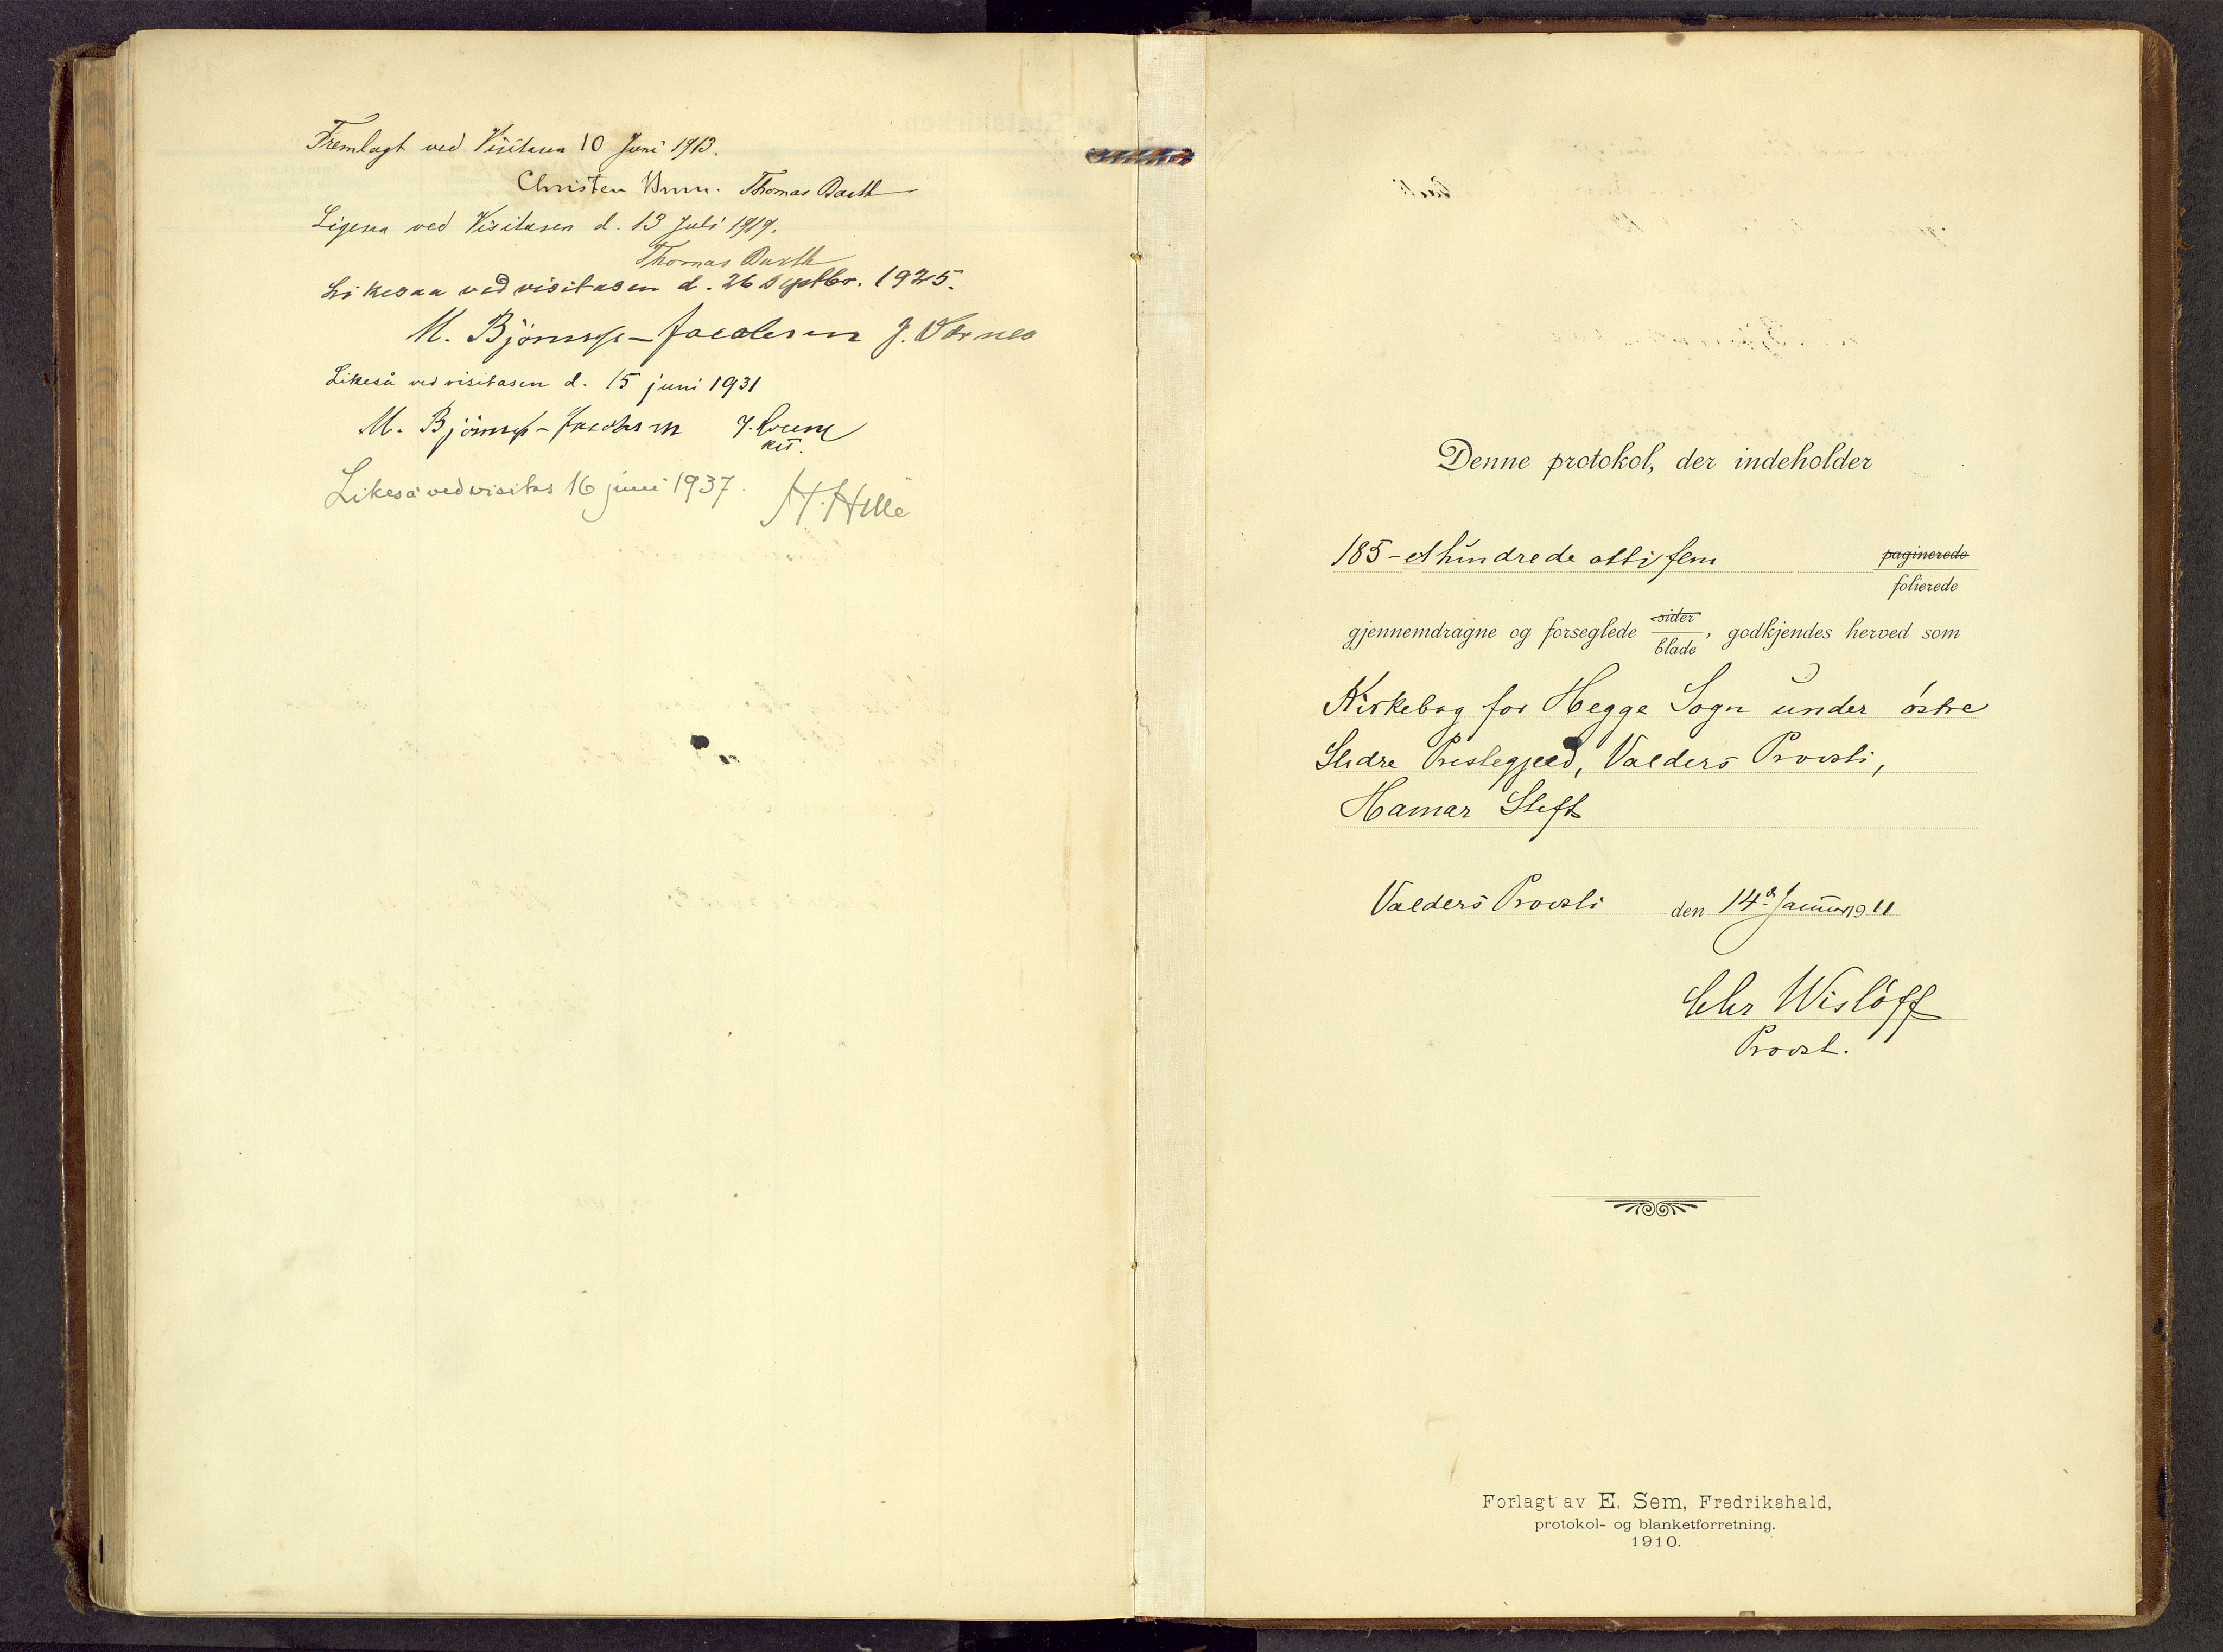 Fremlagt ved Visitasen 10 Juni 1913.
Christen Thomas Barth
Ligesaa ved Visitasen d. 13 Juli 1919.
Thomas Barth
Likesaa ved visitasen d. 26 Septbr. 1925.
M. Bjönness-Jacobsen J. Värnes
Likeså ved visitasen d. 15 juni 1931
M. Bjönness-Jacobsen J.
kst.
Likeså ved visitas 16 juni 1937. H. Hille
Denne protokol, der indeholder
185 - et hundrede otti fem paginerede
folierede
gjennemdragne og forseglede sider
blade, godkjendes herved som
Kirkebog for Hegge Sogn under östre
Slidre Prestegjeld, Valders Provsti,
Hamar Stift
Valders Provsti den 14de Januar 1911
Chr Wislöff
Provst.
Forlagt av E. Sem, Fredrikshald,
protokol- og blanketforretning.
1910.